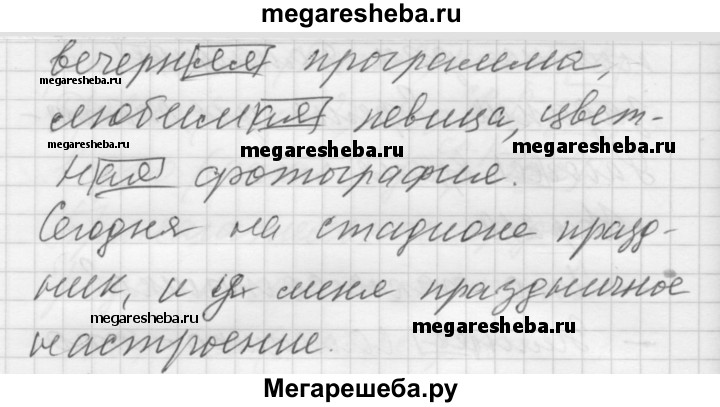 megaresheba.ru
вечерняя программа,
megaresheba.ru
любимая певица, цвет-
megaresheba.ru megaresheba.ru megaresheba.ru
ная фотография.
Сегодня на стадионе празд-
ник, и у меня праздничное
megaresheba.ru megaresheba.ru
настроение.
Мегарешеба.ру